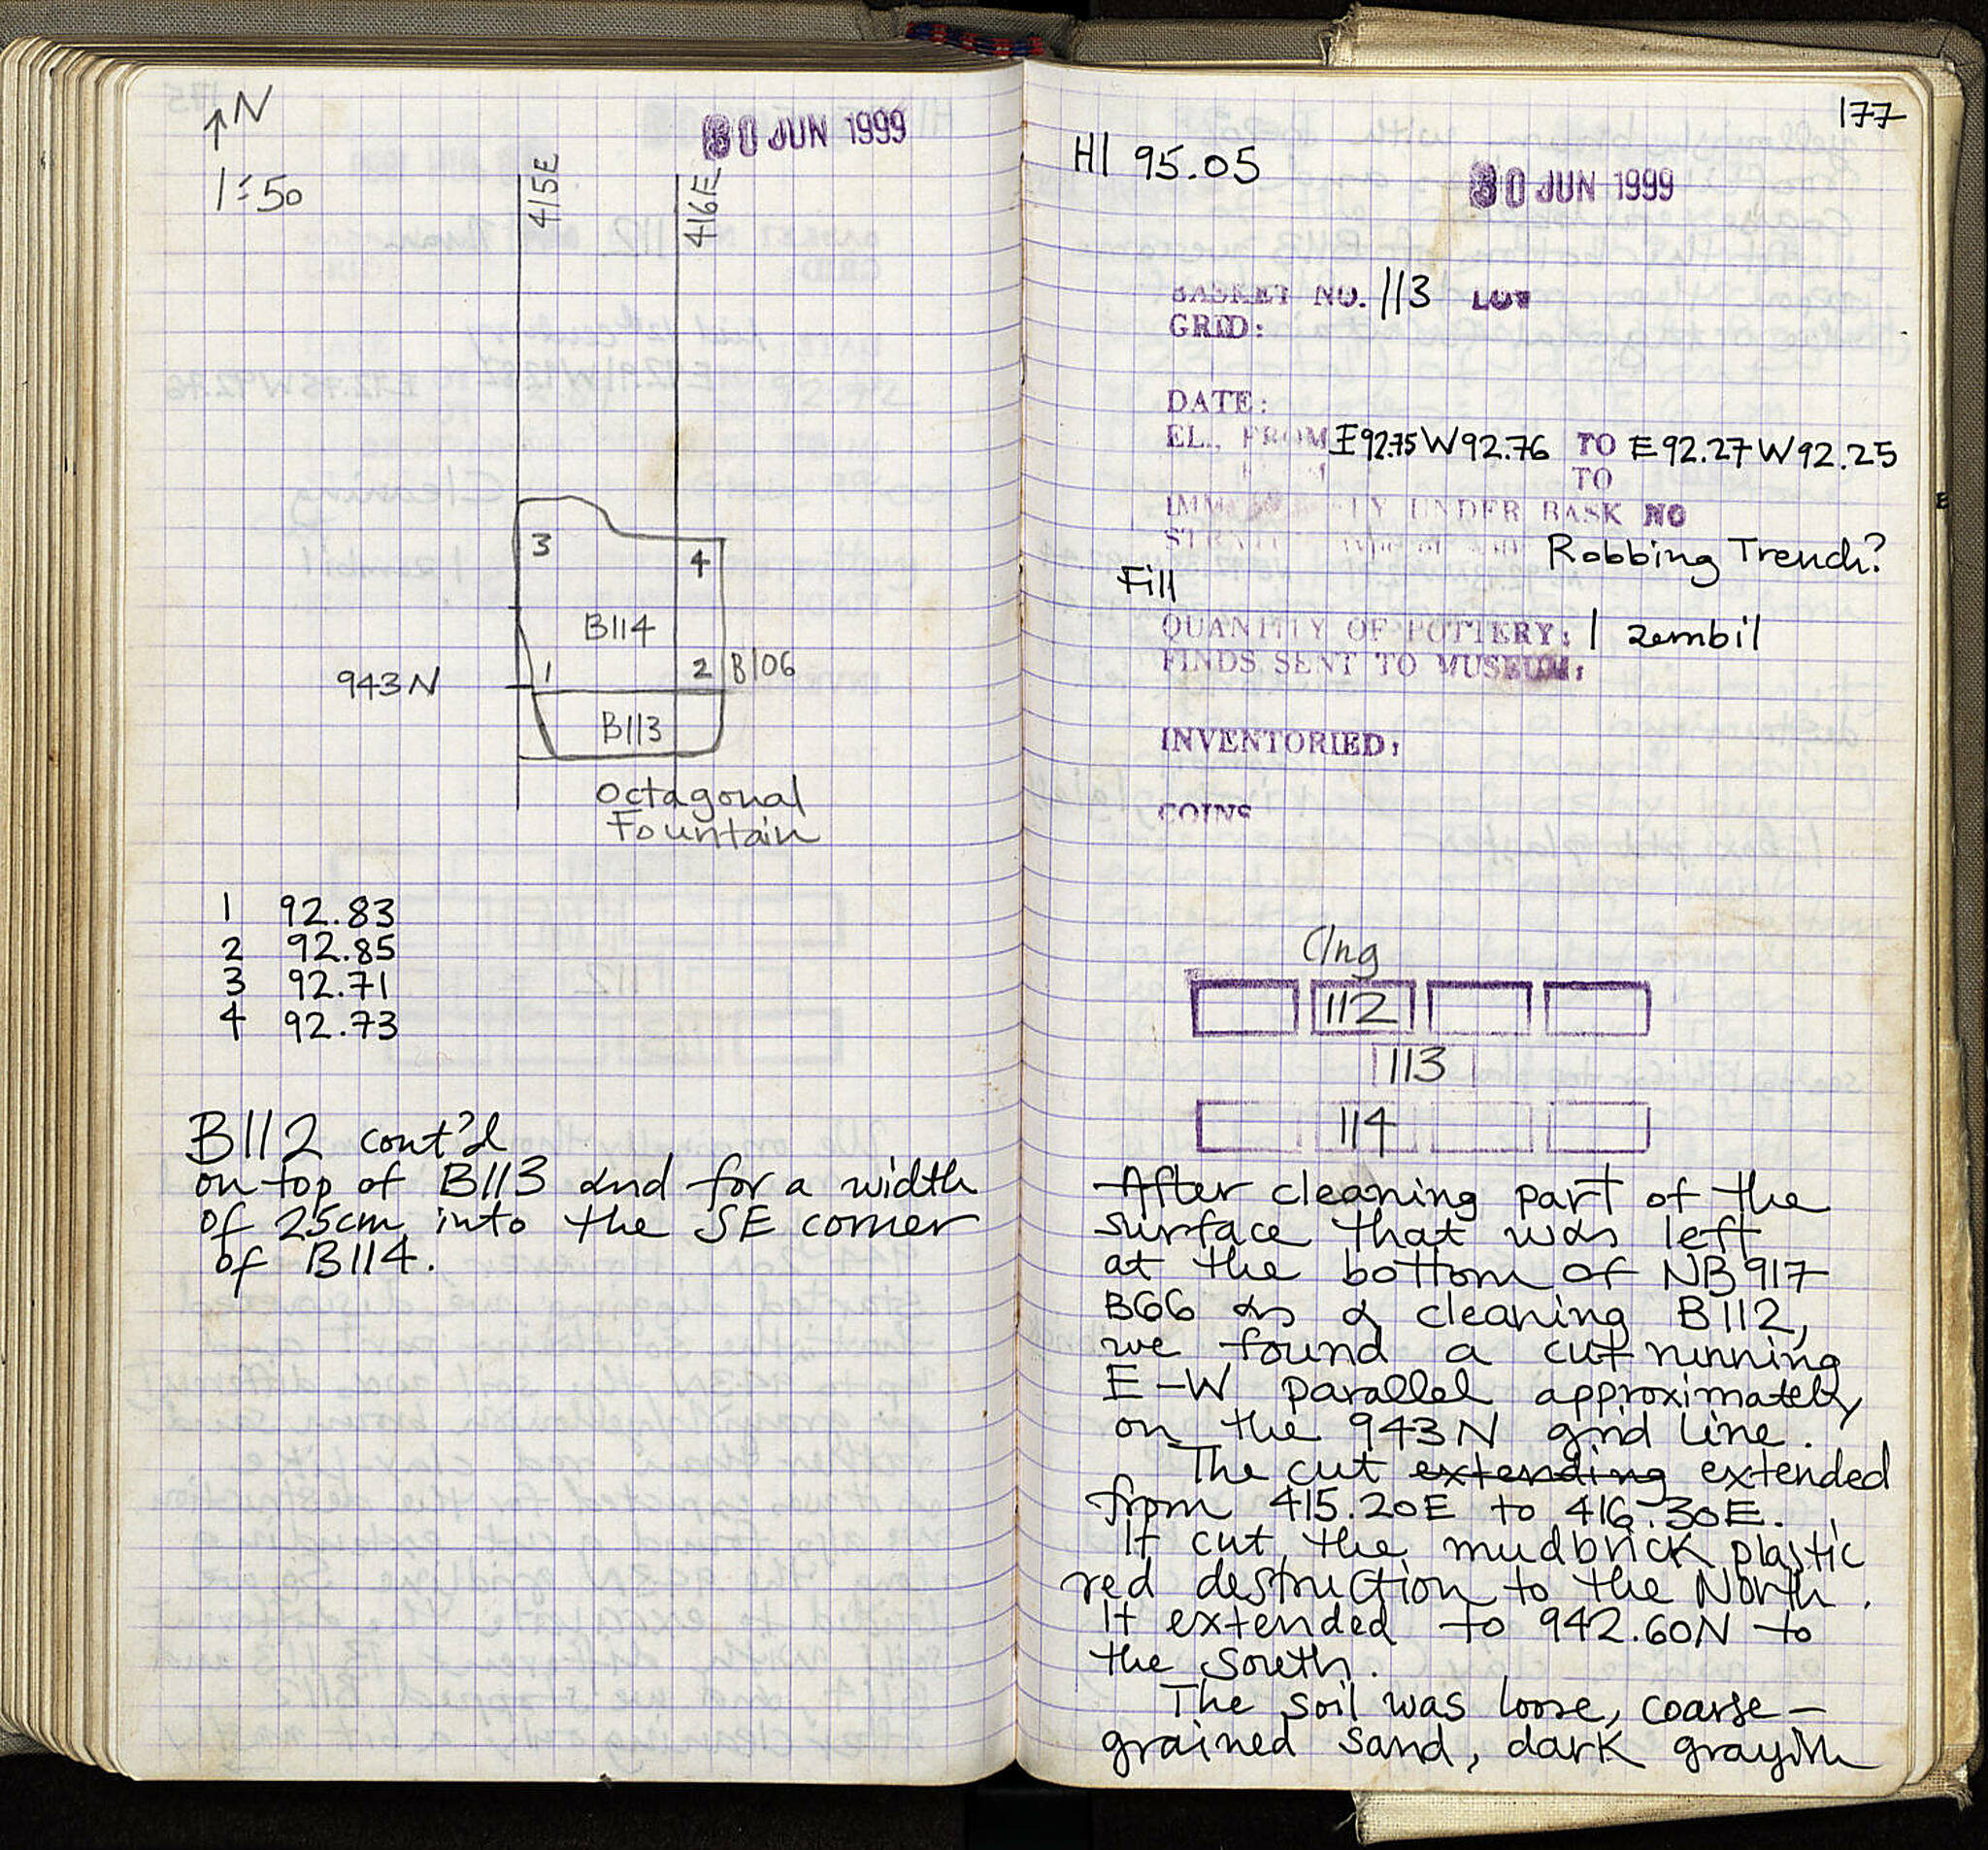 ↑N
30 JUN 1999
1:50
415E
416E
3
4
B114
943N
1
2
B106
B113
Octagonal
Fountain
1 92.83
2 92.85
3 92.71
4 92.73
B112 cont'd
on top of B113 and for a width
of 25cm into the SE corner
of B114.
177
H1 95.05
30 JUN 1999
BASKET NO. 113 LOT
GRID:
DATE:
EL., FROM E92.75 W92.76 TO E92.27 W92.25
TO
UNDER BASK NO
Robbing Trench?
Fill
QUANTITY OF POTTERY: 1 zembil
FINDS SENT TO MUSEUM:
INVENTORIED:
COINS
Clng
112
113
114
After cleaning part of the
surface that was left
at the bottom of NB917
B66 as a cleaning B112,
we found a cut running
E-W parallel approximately
on the 943N grid line.
The cut extending extended
from 415.20E to 416.30E.
It cut the mudbrick plastic
red destruction to the North.
It extended to 942.60N to
the South.
The soil was loose, coarse-
grained sand, dark grayish